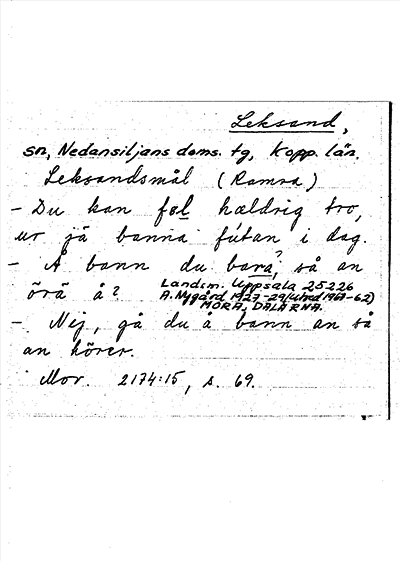 Leksand,
sn, Nedansiljans doms. tg, Kopp. län.
Leksandsmål (Ramsa)
- Du kan fol hældrig tro,
ur jä banna fútan i dag.
- Å bann du bara, så an
örä å?
Landsm. Uppsala 25226
A. Nygård 1927-29 (utred 1961-62)
MORA, DALARNA.
- Nij, gå du å bann an så
an hörer.
Mor. 2174:15, s. 69.